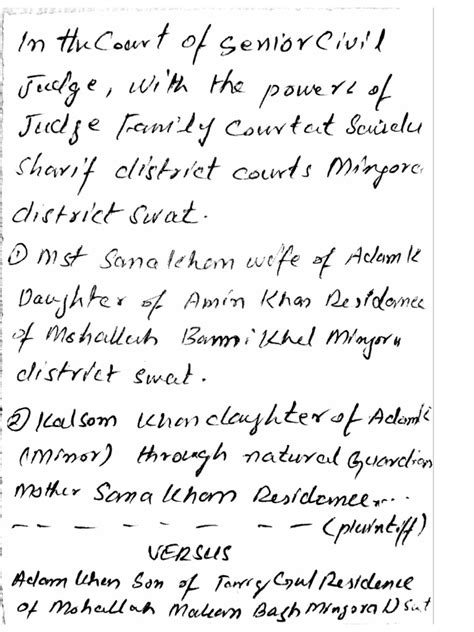 In the Court of Senior Civil
Judge, with the powers of
Judge Family Court at Saidu
Sharif district courts Mingora
district Swat.
① Mst Sana Khan wife of Adam K
Daughter of Amin Khan Residence
of Mohallah Bammi Khel Mingora
district swat.
② Kalsom Khan daughter of Adam K
(Minor) through natural Guardian
Mother Sana Khan Residence....
(plaintiff)
VERSUS
Adam Khan Son of Gul Residence
of Mohallah Makan Bagh Mingora D Swat